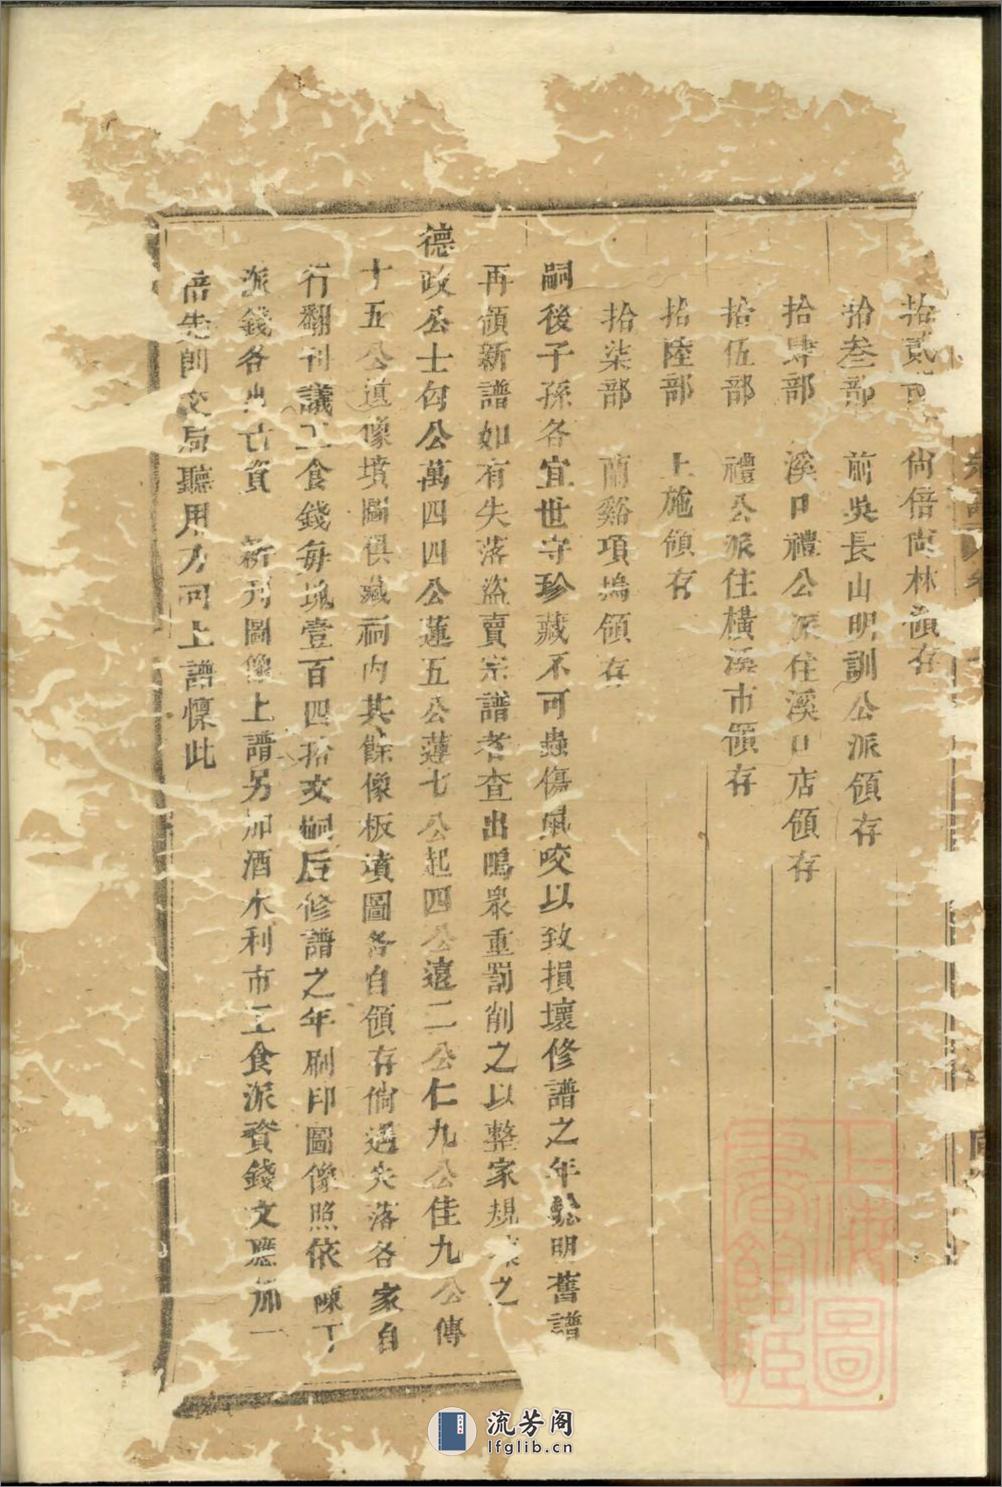 拾貳 尙倍尙林領存
拾叁部 前吳長山明訓公派領存
拾肆部 溪口禮公派住溪口店領存
拾伍部 禮公派住橫溪市領存
拾陸部 上施領存
拾柒部 蘭谿項塢領存
嗣後子孫各宜世守珍藏不可蟲傷鼠咬以致損壞修譜之年驗明舊譜
再領新譜如有失落盜賣宗譜者查出鳴衆重罰削之以整家規 之
德政公士匃公萬四四公蓮五公蓮七公起四公遠二公仁九公佳九公傳
十五公遺像墳圖俱藏祠內其餘像板墳圖各自領存倘遇失落各家自
行翻刊議工食錢每塊壹百四拾文嗣后修譜之年刷印圖像照依 丁
派錢各出亡資 新刋圖像上譜另加酒水利市工食派資錢文應加一
倍先即交局聽用方可上譜慄此
上海圖書館藏
流芳阁
lfglib.cn